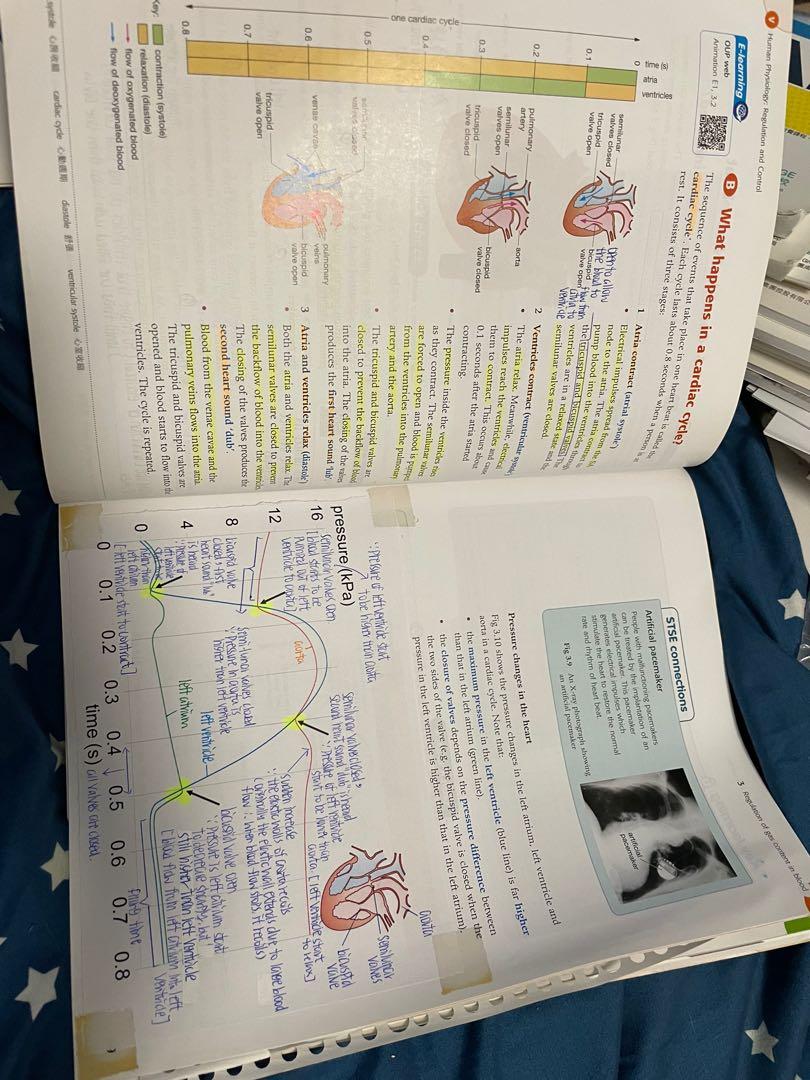 V
Human Physiology: Regulation and Control
E-learning
OUP web
Animation E1, 3.2
B What happens in a cardiac cycle?
The sequence of events that take place in one heart beat is called
cardiac cycle. Each cycle lasts about 0.8 seconds when a person is at
rest. It consists of three stages:
time (s)
atria
ventricles
0
0.1
0.2
0.3
0.4
0.5
0.6
0.7
0.8
one cardiac cycle
semilunar
valves closed
tricuspid
valve open
bicuspid
valve open
open to allow
the blood to
flow from
atria to
ventricle
pulmonary
artery
semilunar
valves open
tricuspid
valve closed
aorta
bicuspid
valve closed
semilunar
valves closed
venae cavae
tricuspid
valve open
pulmonary
veins
bicuspid
valve open
Key:
contraction (systole)
relaxation (diastole)
flow of oxygenated blood
flow of deoxygenated blood
1 Atria contract (atrial systole)
• Electrical impulses spread from the
node to the atria. The atria contract
pump blood into the ventricles
the tricuspid and bicuspid valves. The
ventricles are in a relaxed state and the
semilunar valves are closed.
2 Ventricles contract (ventricular systole)
• The atria relax. Meanwhile, electrical
impulses reach the ventricles and cause
them to contract. This occurs about
0.1 seconds after the atria started
contracting.
• The pressure inside the ventricles rises
as they contract. The semilunar valves
are forced to open and blood is pumped
from the ventricles into the pulmonary
artery and the aorta.
• The tricuspid and bicuspid valves are
closed to prevent the backflow of blood
into the atria. The closing of the valves
produces the first heart sound 'lub'.
3 Atria and ventricles relax (diastole)
• Both the atria and ventricles relax. The
semilunar valves are closed to prevent
the backflow of blood into the ventricles.
The closing of the valves produces the
second heart sound 'dub'.
• Blood from the venae cavae and the
pulmonary veins flows into the atria.
The tricuspid and bicuspid valves are
opened and blood starts to flow into the
ventricles. The cycle is repeated.
systole 心縮期 cardiac cycle 心動週期 diastole 舒張 ventricular systole 心室收縮
3 Regulation of gas content in blood
STSE connections
Artificial pacemaker
People with malfunctioning pacemakers
can be treated by the implantation of an
artificial pacemaker. This pacemaker
generates electrical impulses which
stimulate the heart to restore the normal
rate and rhythm of heart beat.
Fig 3.9 An X-ray photograph showing
an artificial pacemaker
artificial
pacemaker
Pressure changes in the heart
Fig 3.10 shows the pressure changes in the left atrium, left ventricle and
aorta in a cardiac cycle. Note that:
• the maximum pressure in the left ventricle (blue line) is far higher
than that in the left atrium (green line).
• the closure of valves depends on the pressure difference between
the two sides of the valve (e.g. the bicuspid valve is closed when the
pressure in the left ventricle is higher than that in the left atrium).
∵ pressure of left ventricle start
to be higher than aorta
pressure (kPa)
16
12
8
4
0
semilunar valves open
[blood starts to be
pumped out of left
ventricle to aorta]
bicuspid valve
closed, first
heart sound "lub"
is heard
∵ pressure of
left ventricle
higher than
left atrium
[left ventricle start to contract]
aorta
semi-lunar valves closed
∵ pressure in aorta is
higher than left ventricle
left ventricle
left atrium
semilunar valve closed,
second heart sound "dub" is heard
∵ pressure of left ventricle
start to be lower than
aorta [left ventricle start
to relax]
sudden increase
∵ the elastic walls of aorta recoils
(originally the elastic wall extends due to large blood
flow ∴ when blood flow slows it recoils)
bicuspid valve open
∵ pressure in left atrium start
to decrease slowly, but
still higher than left ventricle
[blood flow from left atrium into left
ventricle]
filling time
aorta
semilunar
valves
bicuspid
valve
0
0.1
0.2
0.3
0.4
0.5
0.6
0.7
0.8
time (s)
all valves are closed.